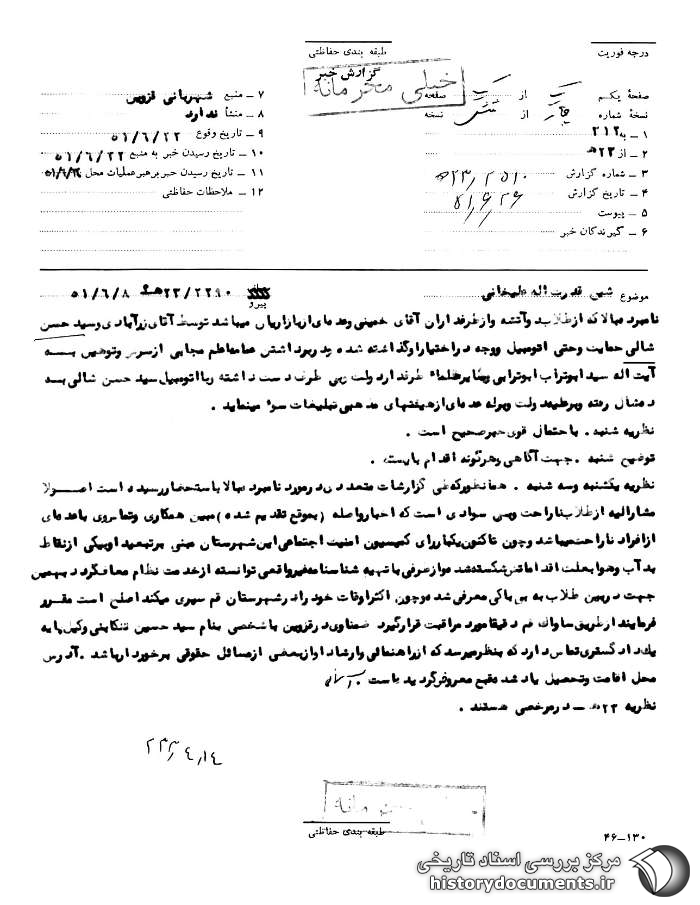 درجه فوریت
طبقه بندی حفاظتی
گزارش خبر
خیلی محرمانه
صفحهٔ یکم از صفحه
نسخهٔ شماره چهار از نسخه
۱ ـ به ۲۱۲
۲ ـ از ۲۳ھ
۳ ـ شماره گزارش
۴ ـ تاریخ گزارش ۵۱/۶/۲۶
۵ ـ پیوست
۶ ـ گیرندگان خبر
۷ ـ منبع شهربانی قزوین
۸ ـ منشأ ندارد
۹ ـ تاریخ وقوع ۵۱/۶/۲۲
۱۰ ـ تاریخ رسیدن خبر به منبع ۵۱/۶/۲۲
۱۱ ـ تاریخ رسیدن خبر برهبر عملیات محل
۱۲ ـ ملاحظات حفاظتی
موضوع شیخ قدرت اله علیخانی
پیرو ۲۳/۲۲۹۰ھ ـ ۵۱/۶/۸
نامبرده بالا که از طلاب و از طرفداران آقای خمینی وعده‌ای از بازاریان میباشد توسط آقای زرآبادی وسید حسن
شالی حمایت وحتی اتومبیل ووجه در اختیار او گذاشته شده ودر برداشتن عمامه از سر وتوهین به
آیت اله سید ابوتراب ابوترابی وسایر طرفدار دولت دست داشته وبا اتومبیل سید حسن شالی بسه
دهات شال رفته وبرعلیه دولت وبوله عده‌ای از هیئتهای مذهبی تبلیغات سوء مینماید .
نظریه شنبه . با احتمال قوی خبر صحیح است .
توضیح شنبه . جهت آگاهی وهرگونه اقدام بایسته .
نظریه یکشنبه وسه شنبه . همانطور که طی گزارشات متعددی در مورد نامبرده بالا باستحضار رسیده است اصولا
مشارالیه از طلاب ناراحت وبی سوادی است که اخبار واصله (بموقع تقدیم شده) مبین همکاری وتماس وی با عده‌ای
از افراد ناراحت میباشد وچون تاکنون یکبار رای کمیسیون امنیت اجتماعی این شهرستان مبنی بر تبعید او بیکی از نقاط
بد آب وهوا بعلت اقداماتش شکسته شد واز طرفی با تهیه شناسنامه غیر واقعی توانسته از خدمت نظام معاف گردد بهمین
جهت در بین طلاب به بی باکی معرفی شده وچون اکثر اوقات خود را در شهرستان قم سپری میکند اصلح است مقرر
فرمایند از طریق ساواک قم دقیقا مورد مراقبت قرار گیرد . ضمنا وی در قزوین با شخصی بنام سید حسین تنکابنی وکیل پایه
یک دادگستری تماس دارد که بنظر میرسد که از راهنمائی وارشاد او از بعضی از مسائل حقوقی برخوردار باشد . آدرس
محل اقامت وتحصیل یاد شده متعاقبا معروض گردیده است
نظریه ۲۳ھ ـ در مرخصی هستند .
طبقه بندی حفاظتی
۴۶-۱۳۰
مرکز بررسی اسناد تاریخی
historydocuments.ir